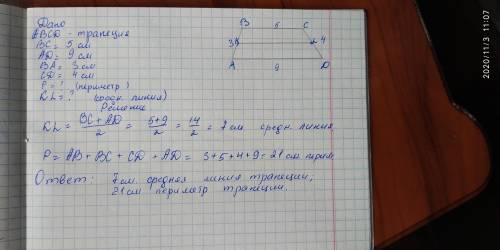 Дано
ABCD - трапеция
BC = 5 см
AD = 9 см
BA = 3 см
CD = 4 см
P = ? (периметр)
KL = ? (средн. линия)
Решение
KL = BC + AD / 2 = 5+9 / 2 = 14 / 2 = 7 см средн. линия
P = AB + BC + CD + AD = 3+5+4+9 = 21 см перим
Ответ: 7 см. средняя линия трапеции;
21 см периметр трапеции.
B 5 C
3 4
A 9 D
2020/11/3 11:07